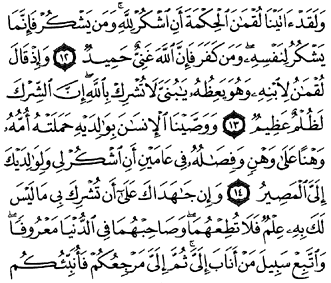 وَلَقَدْ ءَاتَيْنَا لُقْمَٰنَ ٱلْحِكْمَةَ أَنِ ٱشْكُرْ لِلَّهِ ۚ وَمَن يَشْكُرْ فَإِنَّمَا
يَشْكُرُ لِنَفْسِهِۦ ۖ وَمَن كَفَرَ فَإِنَّ ٱللَّهَ غَنِىٌّ حَمِيدٌ ١٢ وَإِذْ قَالَ
لُقْمَٰنُ لِٱبْنِهِۦ وَهُوَ يَعِظُهُۥ يَٰبُنَىَّ لَا تُشْرِكْ بِٱللَّهِ ۖ إِنَّ ٱلشِّرْكَ
لَظُلْمٌ عَظِيمٌ ١٣ وَوَصَّيْنَا ٱلْإِنسَٰنَ بِوَٰلِدَيْهِ حَمَلَتْهُ أُمُّهُۥ
وَهْنًا عَلَىٰ وَهْنٍ وَفِصَٰلُهُۥ فِى عَامَيْنِ أَنِ ٱشْكُرْ لِى وَلِوَٰلِدَيْكَ
إِلَىَّ ٱلْمَصِيرُ ١٤ وَإِن جَٰهَدَاكَ عَلَىٰٓ أَن تُشْرِكَ بِى مَا لَيْسَ
لَكَ بِهِۦ عِلْمٌ فَلَا تُطِعْهُمَا ۖ وَصَاحِبْهُمَا فِى ٱلدُّنْيَا مَعْرُوفًا ۖ
وَٱتَّبِعْ سَبِيلَ مَنْ أَنَابَ إِلَىَّ ۚ ثُمَّ إِلَىَّ مَرْجِعُكُمْ فَأُنَبِّئُكُم